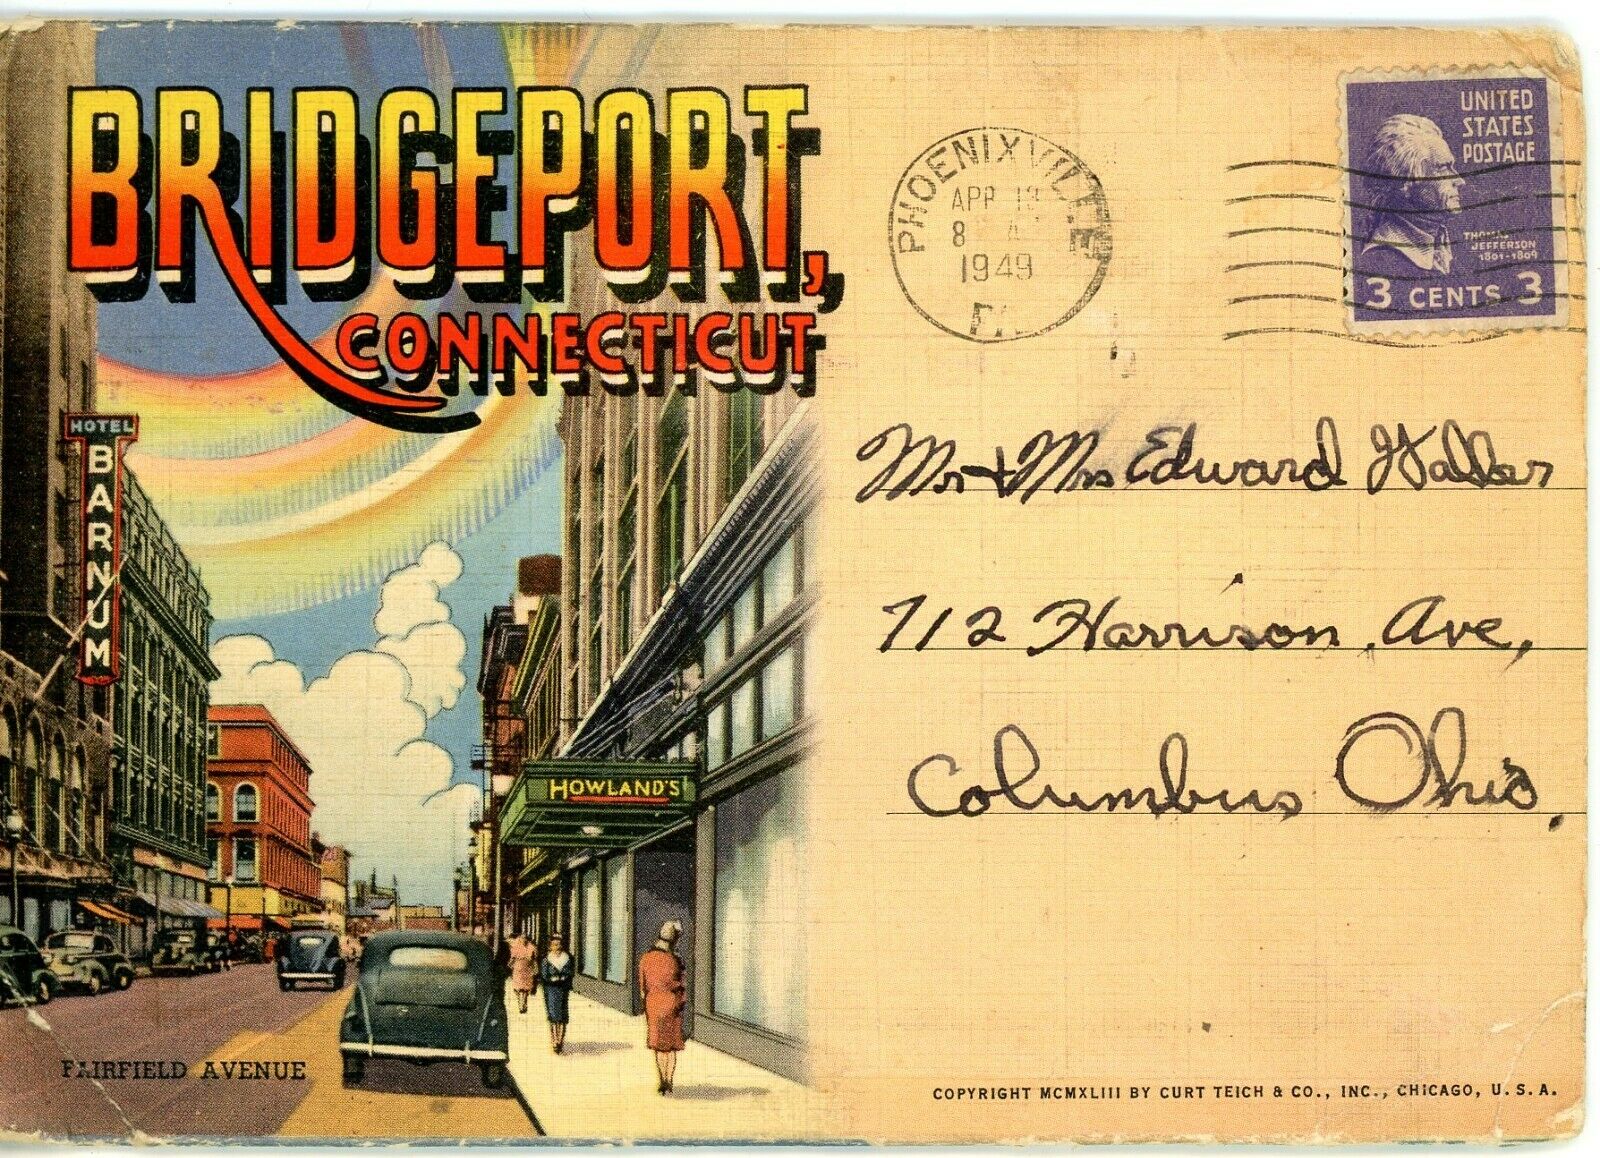 BRIDGEPORT,
CONNECTICUT
HOTEL
BARNUM
HOWLAND'S
FAIRFIELD AVENUE
PHOENIXVILLE
APR 13
8 A
1949
PA
UNITED
STATES
POSTAGE
THOMAS
JEFFERSON
1801-1809
3 CENTS 3
Mr + Mrs Edward Waller
712 Harrison Ave,
Columbus Ohio.
COPYRIGHT MCMXLIII BY CURT TEICH & CO., INC., CHICAGO, U.S.A.